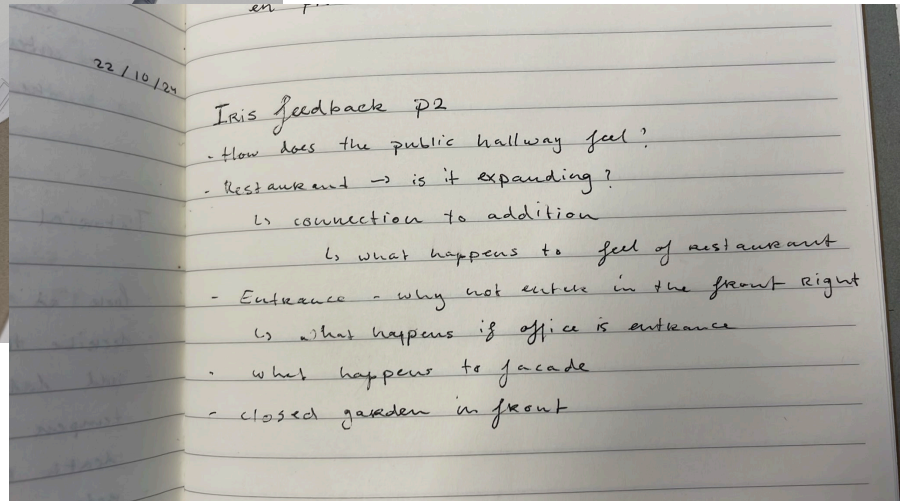 en
22/10/24
Iris feedback P2
- How does the public hallway feel?
- Restaurant → is it expanding?
↳ connection to addition
↳ what happens to feel of restaurant
- Entrance - why not enter in the front right
↳ what happens if office is entrance
- what happens to facade
- closed garden in front